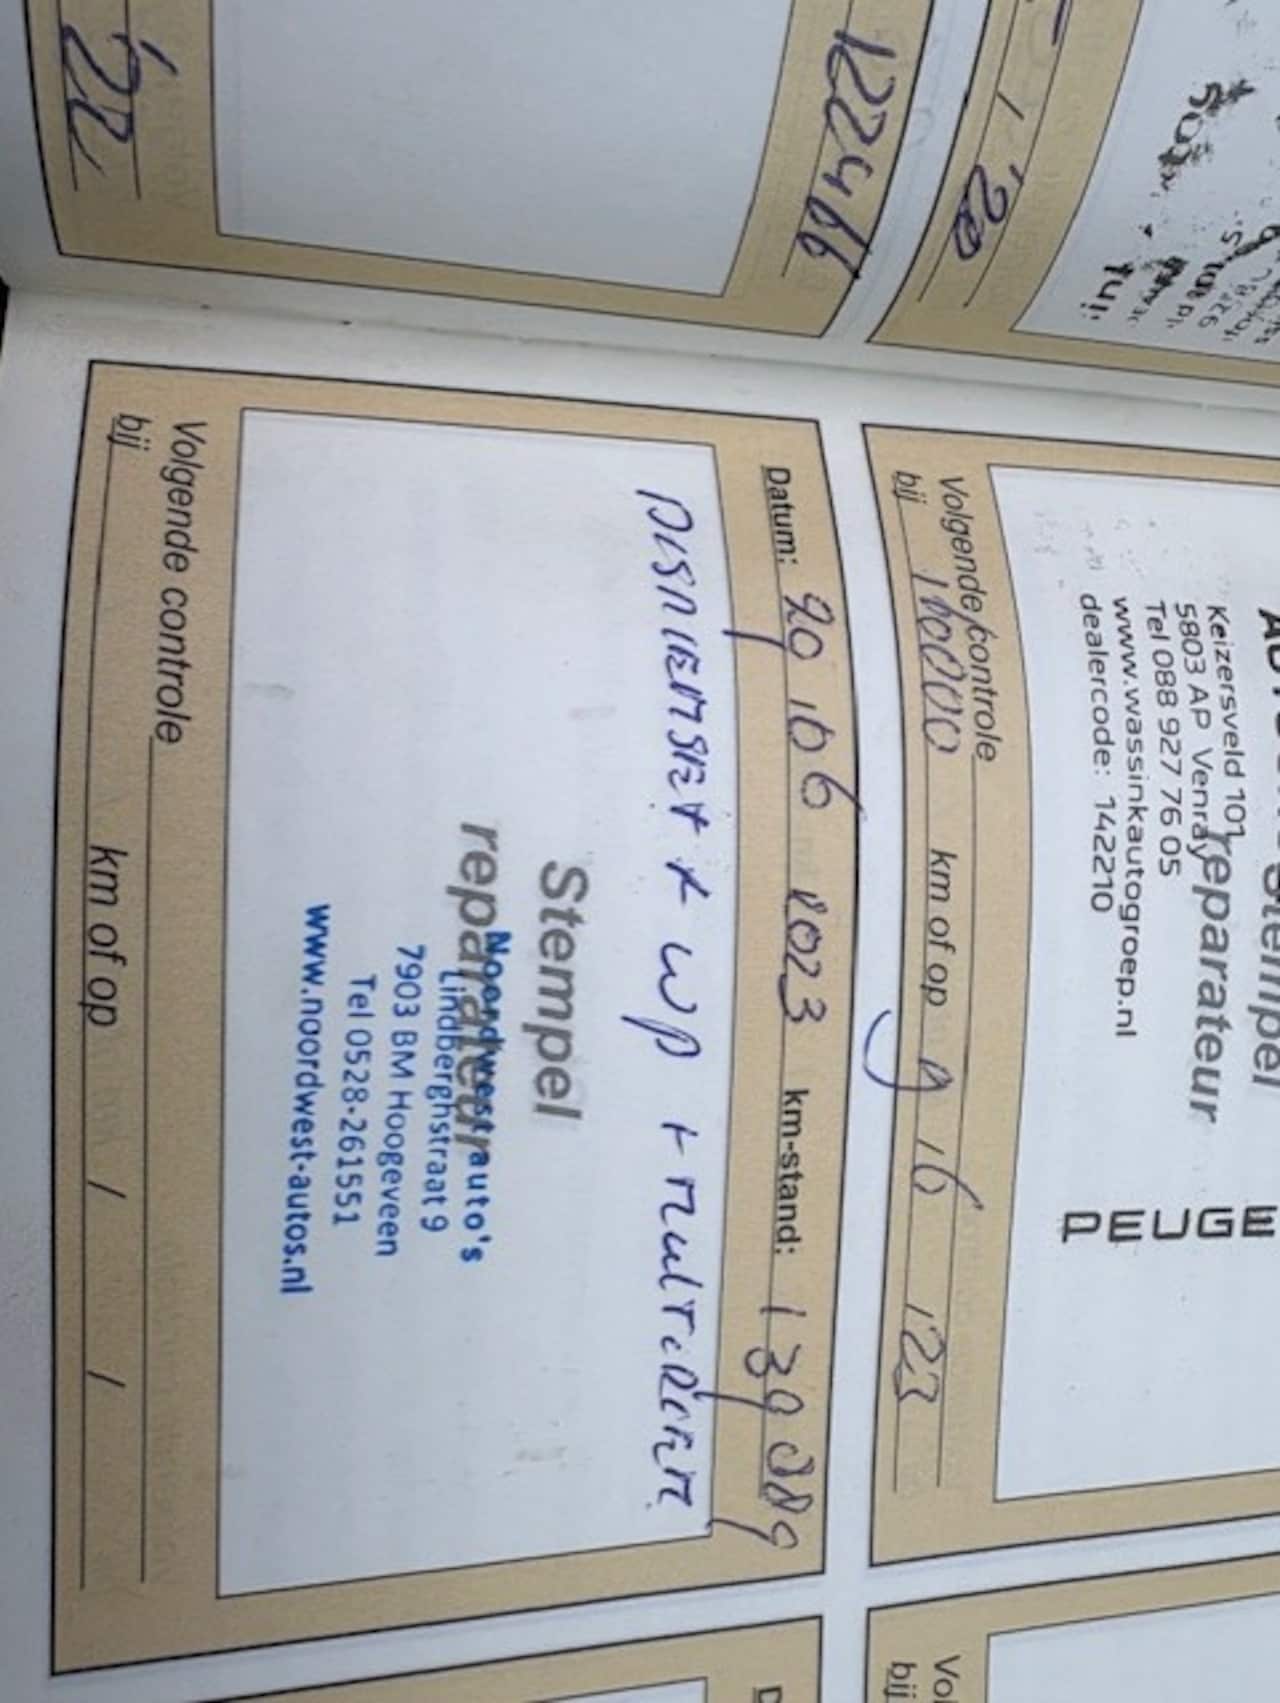 '22
122466
'20
Keizersveld 101
5803 AP Venray
Tel 088 927 76 05
www.wassinkautogroep.nl
dealercode: 142210
Stempel
reparateur
Volgende controle
bij 140000 km of op 9 / 6 / 23
Datum: 29 / 06 2023 km-stand: 139089
DISRIEMSET + WP + MULTIRIEM
Stempel
reparateur
Noordwest auto's
Lindberghstraat 9
7903 BM Hoogeveen
Tel 0528-261551
www.noordwest-autos.nl
Volgende controle
bij km of op / /
D
Vol
bij